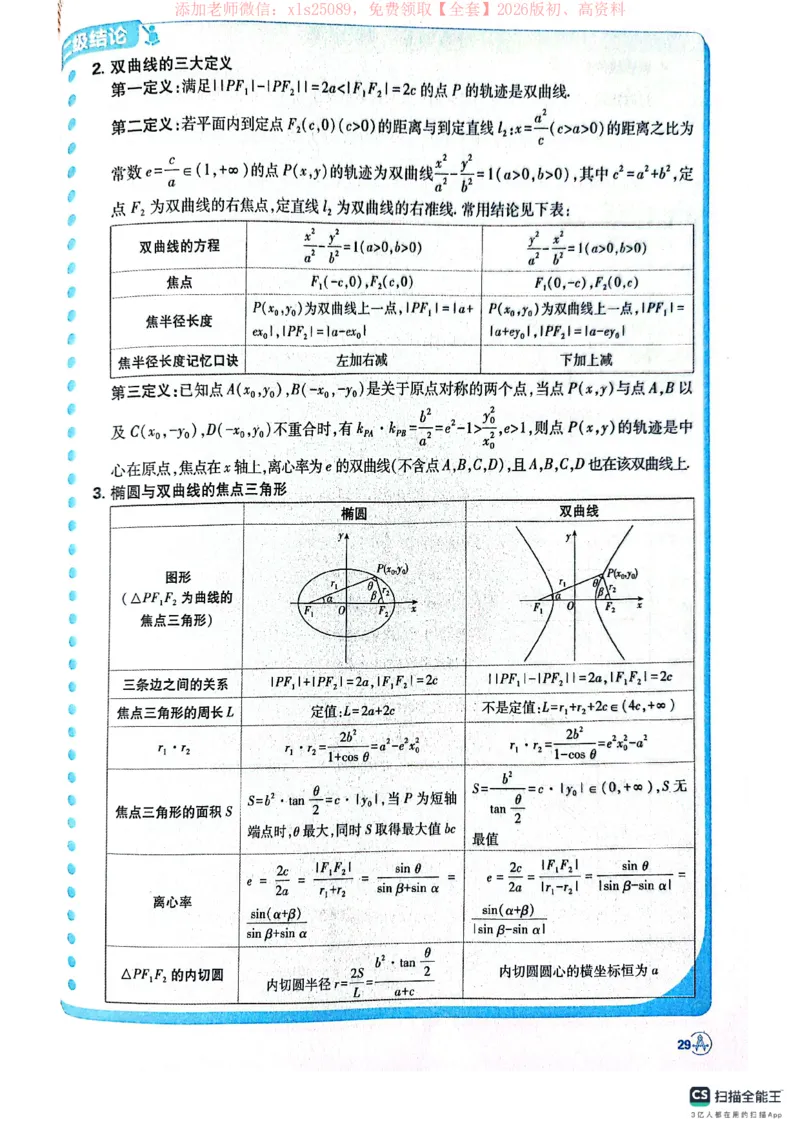 添加老师微信：xls25089，免费领取【全套】2026版初、高资料
二级结论
2. 双曲线的三大定义
第一定义:满足||PF₁|-|PF₂||=2a<|F₁F₂|=2c的点P的轨迹是双曲线.
第二定义:若平面内到定点F₂(c,0)(c>0)的距离与到定直线l₂:x=a²/c(c>a>0)的距离之比为
常数e=c/a∈(1,+∞)的点P(x,y)的轨迹为双曲线x²/a²-y²/b²=1(a>0,b>0),其中c²=a²+b²,定
点F₂为双曲线的右焦点,定直线l₂为双曲线的右准线.常用结论见下表:
双曲线的方程 x²/a²-y²/b²=1(a>0,b>0) y²/a²-x²/b²=1(a>0,b>0)
焦点 F₁(-c,0),F₂(c,0) F₁(0,-c),F₂(0,c)
焦半径长度 P(x₀,y₀)为双曲线上一点,|PF₁|=|a+ex₀|,|PF₂|=|a-ex₀| P(x₀,y₀)为双曲线上一点,|PF₁|=|a+ey₀|,|PF₂|=|a-ey₀|
焦半径长度记忆口诀 左加右减 下加上减
第三定义:已知点A(x₀,y₀),B(-x₀,-y₀)是关于原点对称的两个点,当点P(x,y)与点A,B以
及C(x₀,-y₀),D(-x₀,y₀)不重合时,有k_PA·k_PB=b²/a²=e²-1>y₀²/x₀²,e>1,则点P(x,y)的轨迹是中
心在原点,焦点在x轴上,离心率为e的双曲线(不含点A,B,C,D),且A,B,C,D也在该双曲线上.
3. 椭圆与双曲线的焦点三角形
椭圆 双曲线
图形
(△PF₁F₂为曲线的
焦点三角形)
y P(x₀,y₀) r₁ θ r₂ α β F₁ O F₂ x
y P(x₀,y₀) r₁ θ r₂ α β F₁ O F₂ x
三条边之间的关系 |PF₁|+|PF₂|=2a,|F₁F₂|=2c ||PF₁|-|PF₂||=2a,|F₁F₂|=2c
焦点三角形的周长L 定值:L=2a+2c 不是定值:L=r₁+r₂+2c∈(4c,+∞)
r₁·r₂ r₁·r₂=2b²/(1+cos θ)=a²-e²x₀² r₁·r₂=2b²/(1-cos θ)=e²x₀²-a²
焦点三角形的面积S S=b²·tan θ/2=c·|y₀|,当P为短轴端点时,θ最大,同时S取得最大值bc S=b²/(tan θ/2)=c·|y₀|∈(0,+∞),S无最值
离心率 e=2c/2a=|F₁F₂|/(r₁+r₂)=sin θ/(sin β+sin α)=sin(α+β)/(sin β+sin α) e=2c/2a=|F₁F₂|/|r₁-r₂|=sin θ/|sin β-sin α|=sin(α+β)/|sin β-sin α|
△PF₁F₂的内切圆 内切圆半径r=2S/L=(b²·tan θ/2)/(a+c) 内切圆圆心的横坐标恒为a
29
CS 扫描全能王
3亿人都在用的扫描App